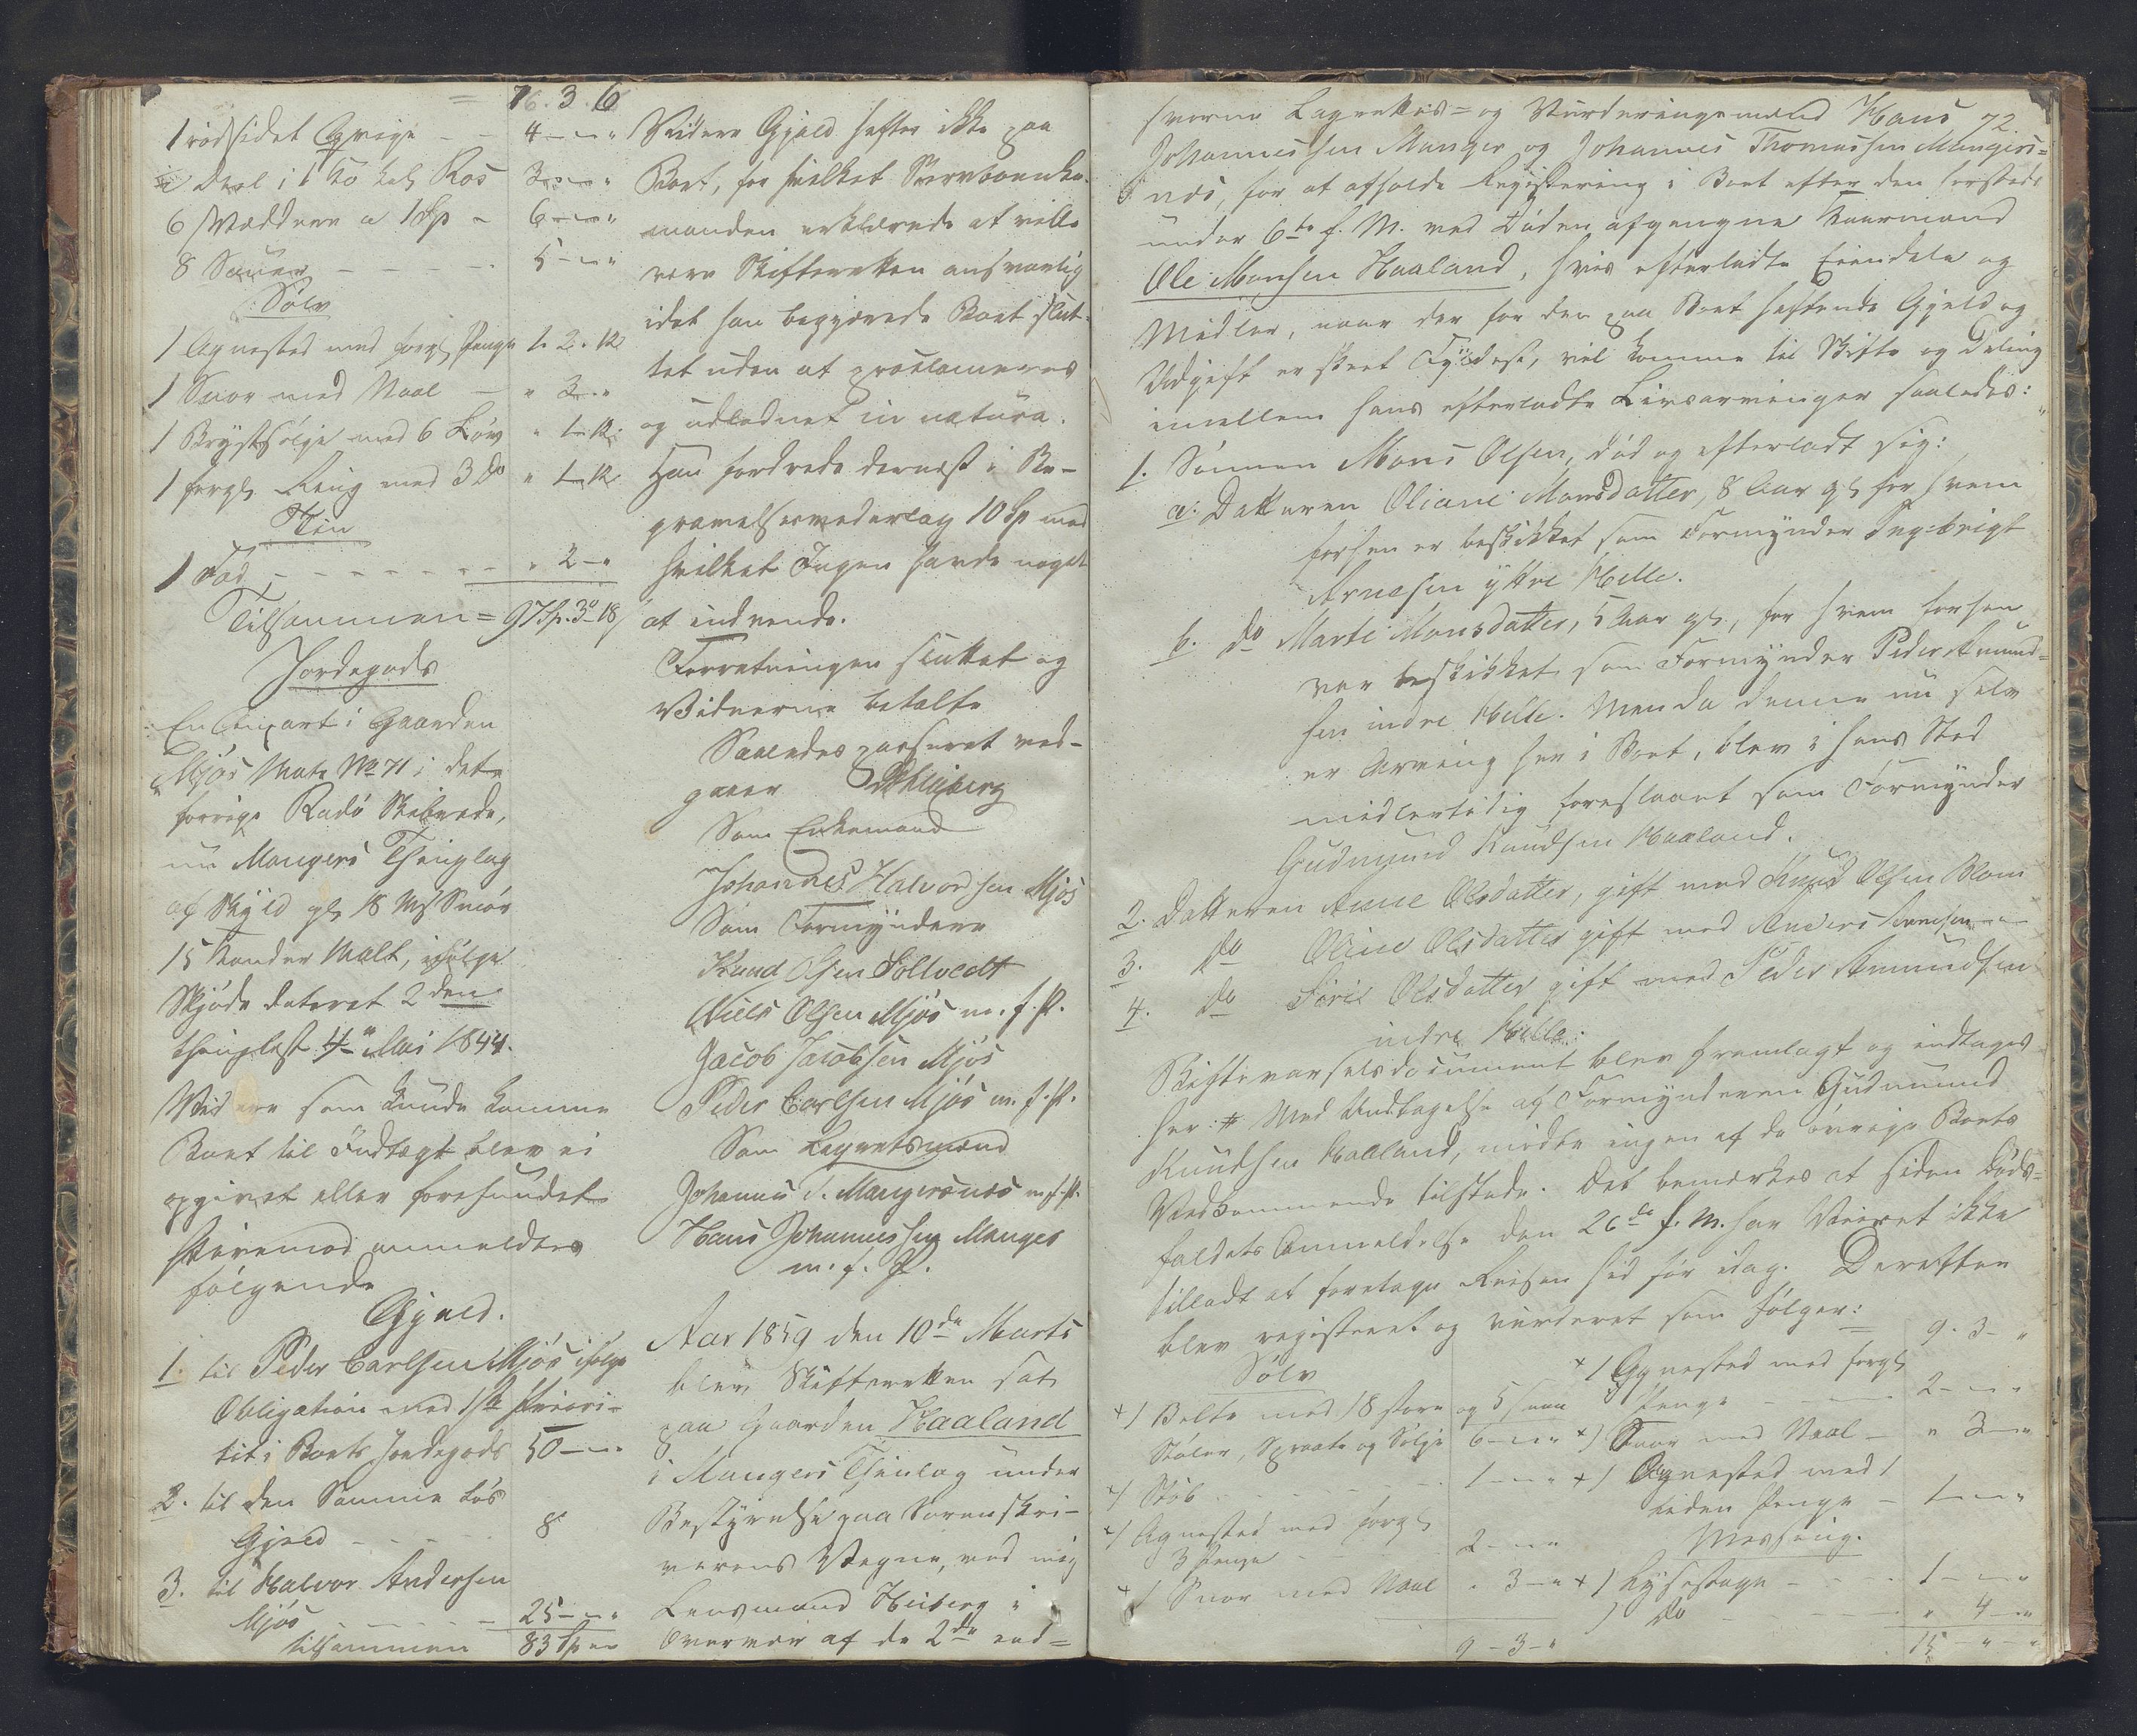 = 76. 3. 6
1 rødsidet Qvige - - 4 - " - "
Deel i 1 Ko kal Ros 3 - " - "
6 Væddere a 1 Sp - 6 - " - "
8 Sauer - - - - 5 - " - "
Sølv
1 Agnested med forgl Penge 1. 2. 12
1 Snor med Naal - " 3 - "
1 Brystsølje med 6 Løv " 1 - 12
1 forgl Ring med 3 Do " 1 - 12
Tin
1 Fad - - - - - - " 2 - "
Tilsammen = 97 Sp. 3 - 18
Jordegods
En Anpart i Gaarden
Mjøs Matr No 71 i det
forrige Radø Skibrede,
nu Mangers Thinglag
af Skyld gl 18 Mk Smør
15 Kander Malt, ifølge
Skjøde dateret 2den
thinglæst 4de Mai 1844.
Videre som kunde komme
Boet til Indtægt blev ei
opgivet eller forefundet
Herimod anmeldtes
følgende
Gjæld.
1. til Peder Carlsen Mjøs ifølge
Obligation med 1ste Priori-
tet i Boets Jordegods 50 - " - "
2. til den Samme løs
Gjæld - - - 8
3. til Halvor Andersen
Mjøs - - - 25 - " - "
tilsammen 83 Sp " "
Videre Gjæld hefter ikke paa
Boet, for hvilket Stervboenke-
manden erklærede at ville
være Skifteretten ansvarlig
idet han begjærede Boet slut-
tet uden at proclameres
og udlodnet in natura.
Han fordrede dernæst i Be-
gravelsesvederlag 10 Sp mod
hvilket Ingen havde noget
at indvende.
Forretningen sluttet og
Vidnerne betalte
Saaledes passeret ved-
gaaer Heiberg
Som Enkemand
Johannes Halvorsen Mjøs
Som Formyndere
Knud Olsen Soltvedt
Niels Olsen Mjøs m. f. P.
Jacob Jacobsen Mjøs
Peder Carlsen Mjøs m. f. P.
Som Lagretsmænd
Johannes T. Mangersnæs m. f. P.
Hans Johannessen Manger
m. f. P.
Aar 1859 den 10de Marts
blev Skifteretten sat
paa Gaarden Haaland
i Mangers Thinlag under
Bestyrelse paa Sorenskri-
verens Vegne, ved mig
Lensmand Heiberg i
Overvær af de 2de eed=
72.
svorne Lagrettes= og Vurderingsmænd Hans
Johannessen Manger og Johannes Thomassen Mangers=
næs, for at afholde Registering i Boet efter den herstede
under 6te f. M. ved Døden afgangne Kaarmand
Ole Monsen Haaland, hvis efterladte Eiendele og
Midler, naar der for den paa Boet heftende Gjæld og
Udgift er skeet Fyldest, vil komme til Skifte og Deling
imellem hans efterladte Livsarvinger saaledes:
1. Sønnen Mons Olsen, død og efterladt sig:
a: Datteren Oliane Monsdatter, 8 Aar gl for hvem
forhen er beskikket som Formynder Ingebrigt
Arnesen yttre Helle.
b. do Marte Monsdatter, 5 Aar gl, for hvem forhen
var beskikket som Formynder Peder Amund=
sen indre Helle. Men da denne nu selv
er Arving her i Boet, blev i hans Sted
midlertidig foreslaaet som Formynder
Gudmund Knudsen Haaland.
2. Datteren Anne Olsdatter, gift med Knud Olsen Blom
3. do Oline Olsdatter gift med Anders
4. do Siri Olsdatter gift med Peder Amundsen
indre Helle.
Skiftevarselsdocument blev fremlagt og indtages
her # Med Undtagelse af Formynderen Gudmund
Knudsen Haaland, mødte ingen af de øvrige Boets
Vedkommende tilstede. Det bemærkes at siden Døds=
faldets Anmeldelse den 26de f. M. har Veiret ikke
tilladt at foretage Reisen hid før idag. Derefter
blev registreret og vurderet som følger:
Sølv
+ 1 Belte med 18 store og 5 smaa
Støler, Sproste og Sølje 6 - " - "
+ 1 Støb - - - - 1 - " - "
+ 1 Agnested med forgl
3 Penge - - 2 - " - "
+ 1 Snor med Naal " 3 - "
9 - 3 - "
9. 3 - "
+ 1 Agnested med forgl
Penge - - - 2 - " - "
+ 1 Snor med Naal - " 3 - "
+ 1 Agnested med 1
liden Penge - 1 - " - "
Messing.
+ 1 Lysestage - - - 1 - " - "
1 do - - - " 4 - "
15 - " - "